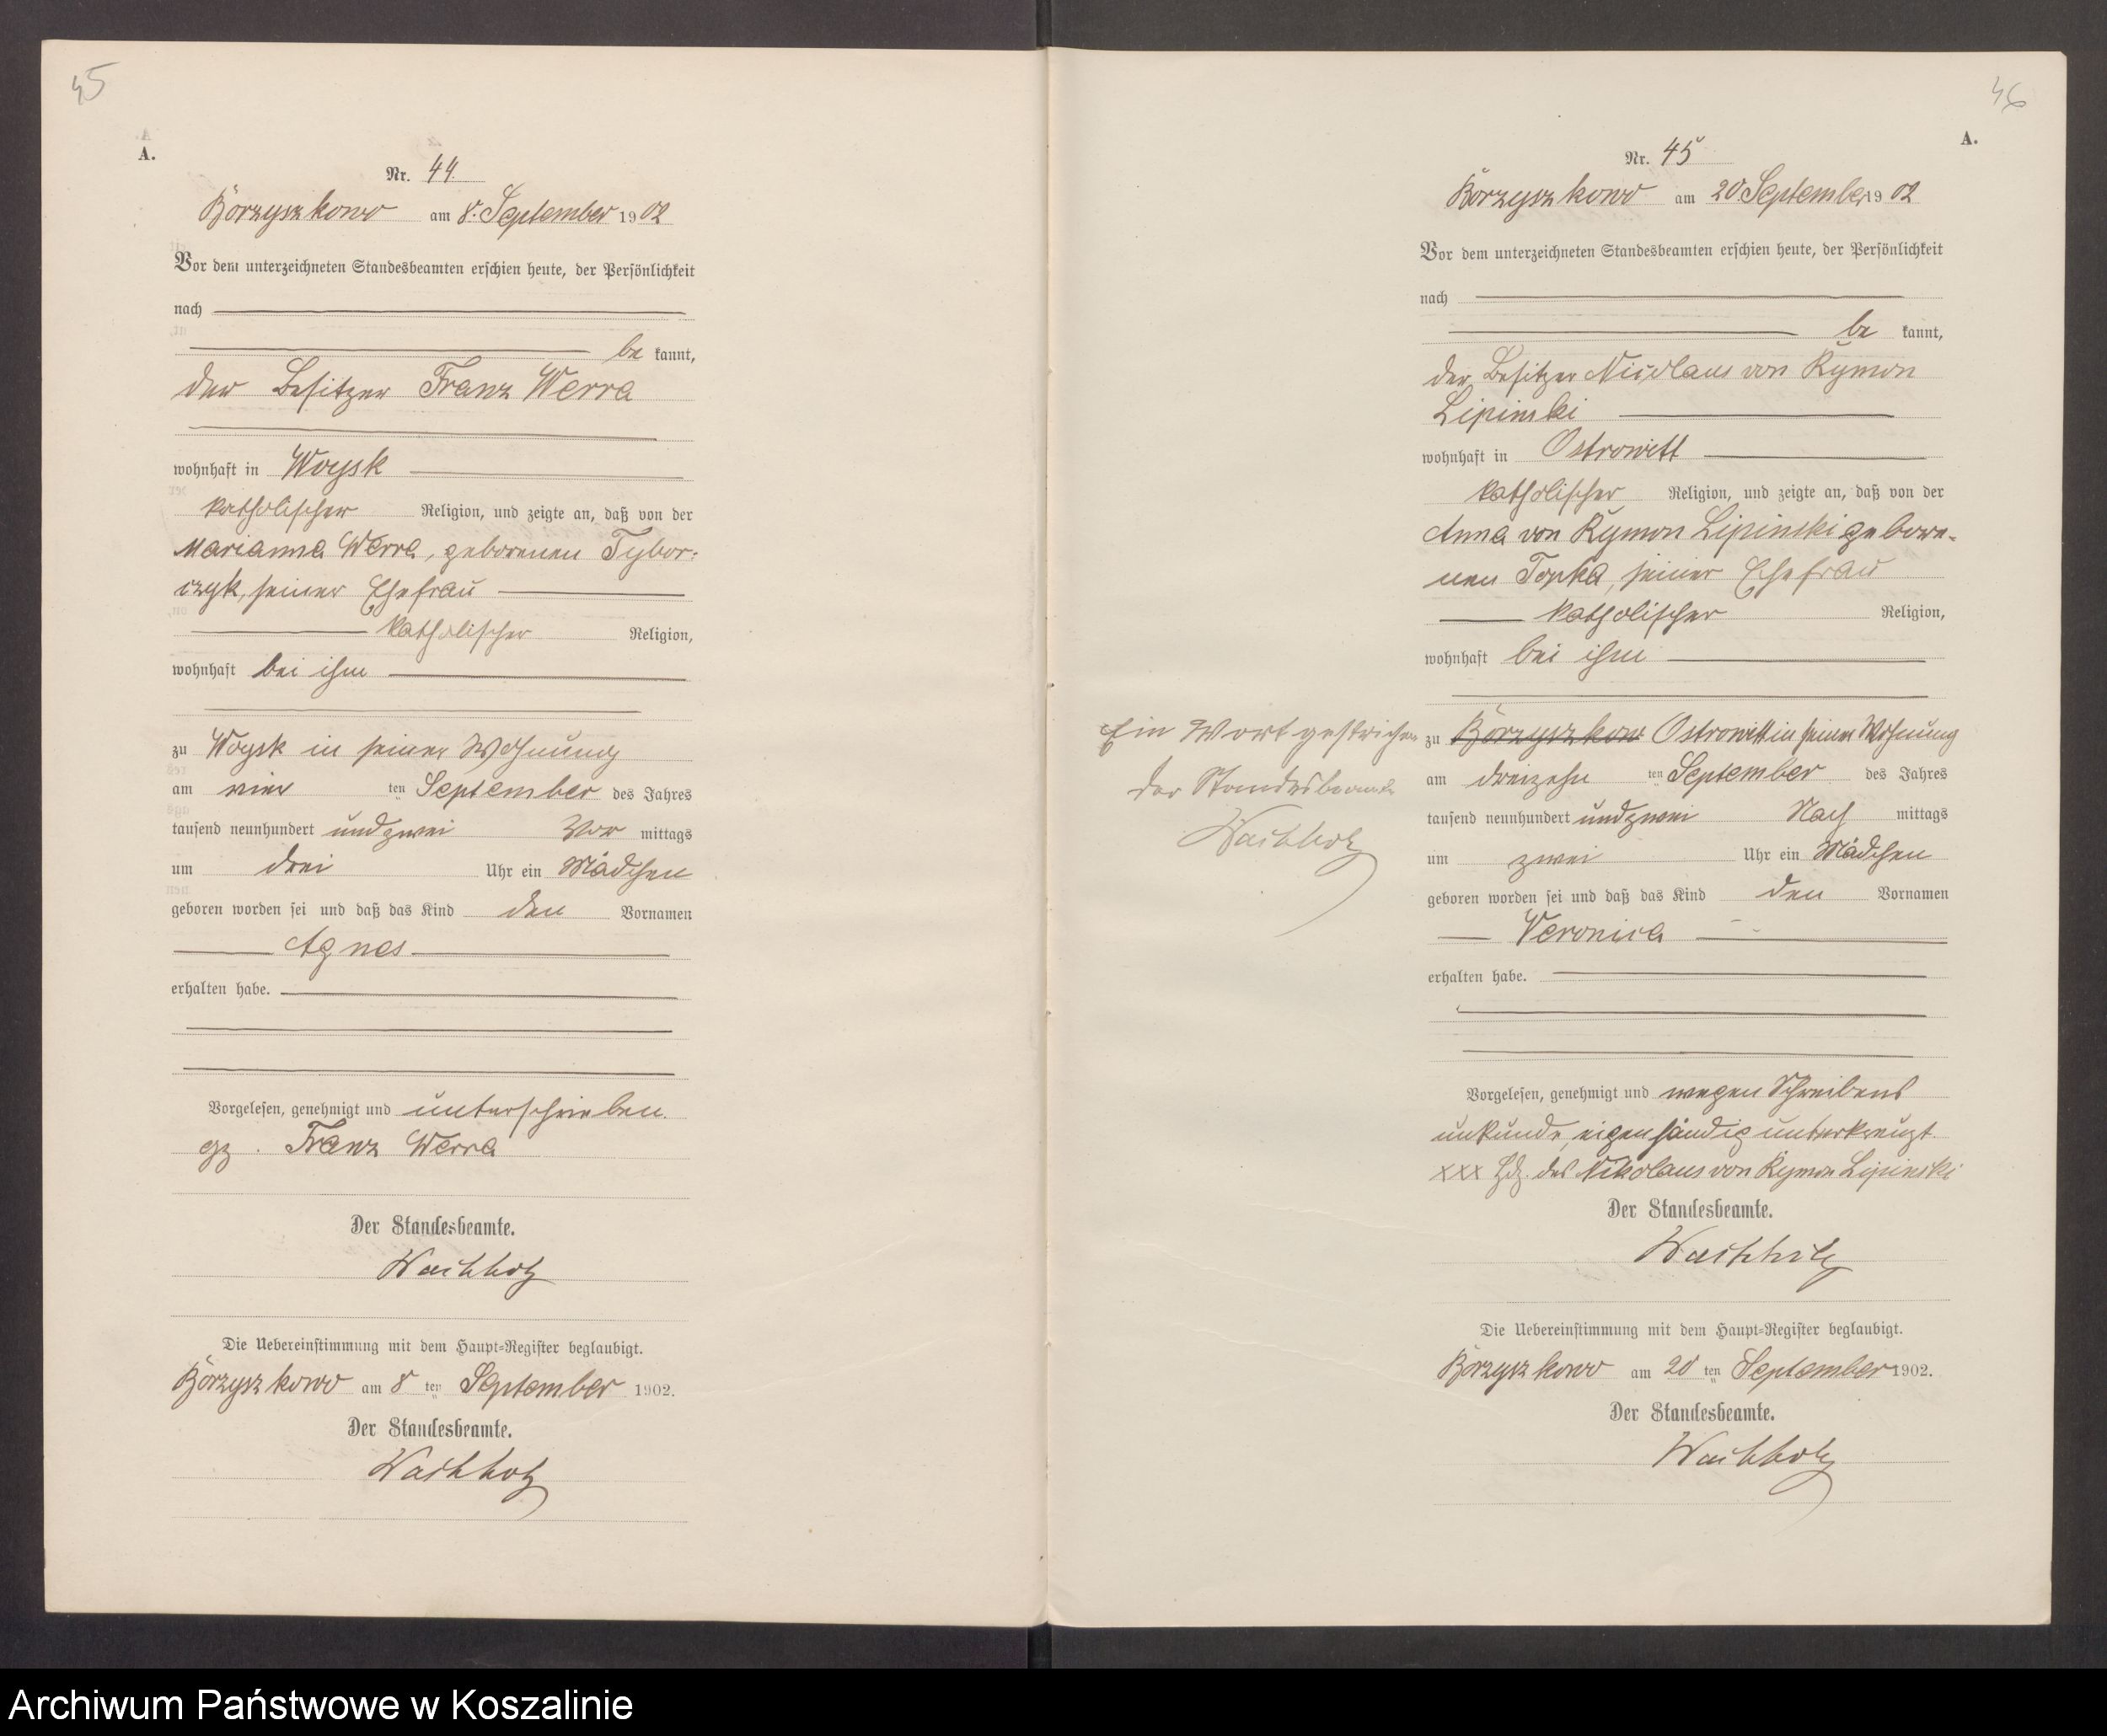 45
A.
Nr. 44.
Borzyszkowo am 8. September 1902
Vor dem unterzeichneten Standesbeamten erschien heute, der Persönlichkeit
nach
be kannt,
der Besitzer Franz Werra
wohnhaft in Woysk
katholischer Religion, und zeigte an, daß von der
Marianna Werra, geborenen Tybor-
czyk, seiner Ehefrau
katholischer Religion,
wohnhaft bei ihm
zu Woysk in seiner Wohnung
am vier ten September des Jahres
tausend neunhundert und zwei Vor mittags
um drei Uhr ein Mädchen
geboren worden sei und daß das Kind den Vornamen
Agnes
erhalten habe.
Vorgelesen, genehmigt und unterschrieben.
gz. Franz Werra
Der Standesbeamte.
Wachholz
Die Uebereinstimmung mit dem Haupt-Register beglaubigt.
Borzyszkowo am 8 ten September 1902.
Der Standesbeamte.
Wachholz
46
A.
Nr. 45
Borzyszkowo am 20. September 1902
Vor dem unterzeichneten Standesbeamten erschien heute, der Persönlichkeit
nach
be kannt,
der Besitzer Nicolaus von Rymon
Lipinski
wohnhaft in Ostrowitt
katholischer Religion, und zeigte an, daß von der
Anna von Rymon Lipinski gebore-
nen Topka, seiner Ehefrau
katholischer Religion,
wohnhaft bei ihm
zu Borzyszkow Ostrowitt in seiner Wohnung
am dreizehn ten September des Jahres
tausend neunhundert und zwei Nach mittags
um zwei Uhr ein Mädchen
geboren worden sei und daß das Kind den Vornamen
Veronica
erhalten habe.
Vorgelesen, genehmigt und wegen Schreibens
unkunde, eigenhändig unterkreuzt.
xxx Hdz. des Nikolaus von Rymon Lipinski
Der Standesbeamte.
Wachholz
Die Uebereinstimmung mit dem Haupt-Register beglaubigt.
Borzyszkowo am 20 ten September 1902.
Der Standesbeamte.
Wachholz
Ein Wort gestrichen
Der Standesbeamte
Wachholz
Archiwum Państwowe w Koszalinie